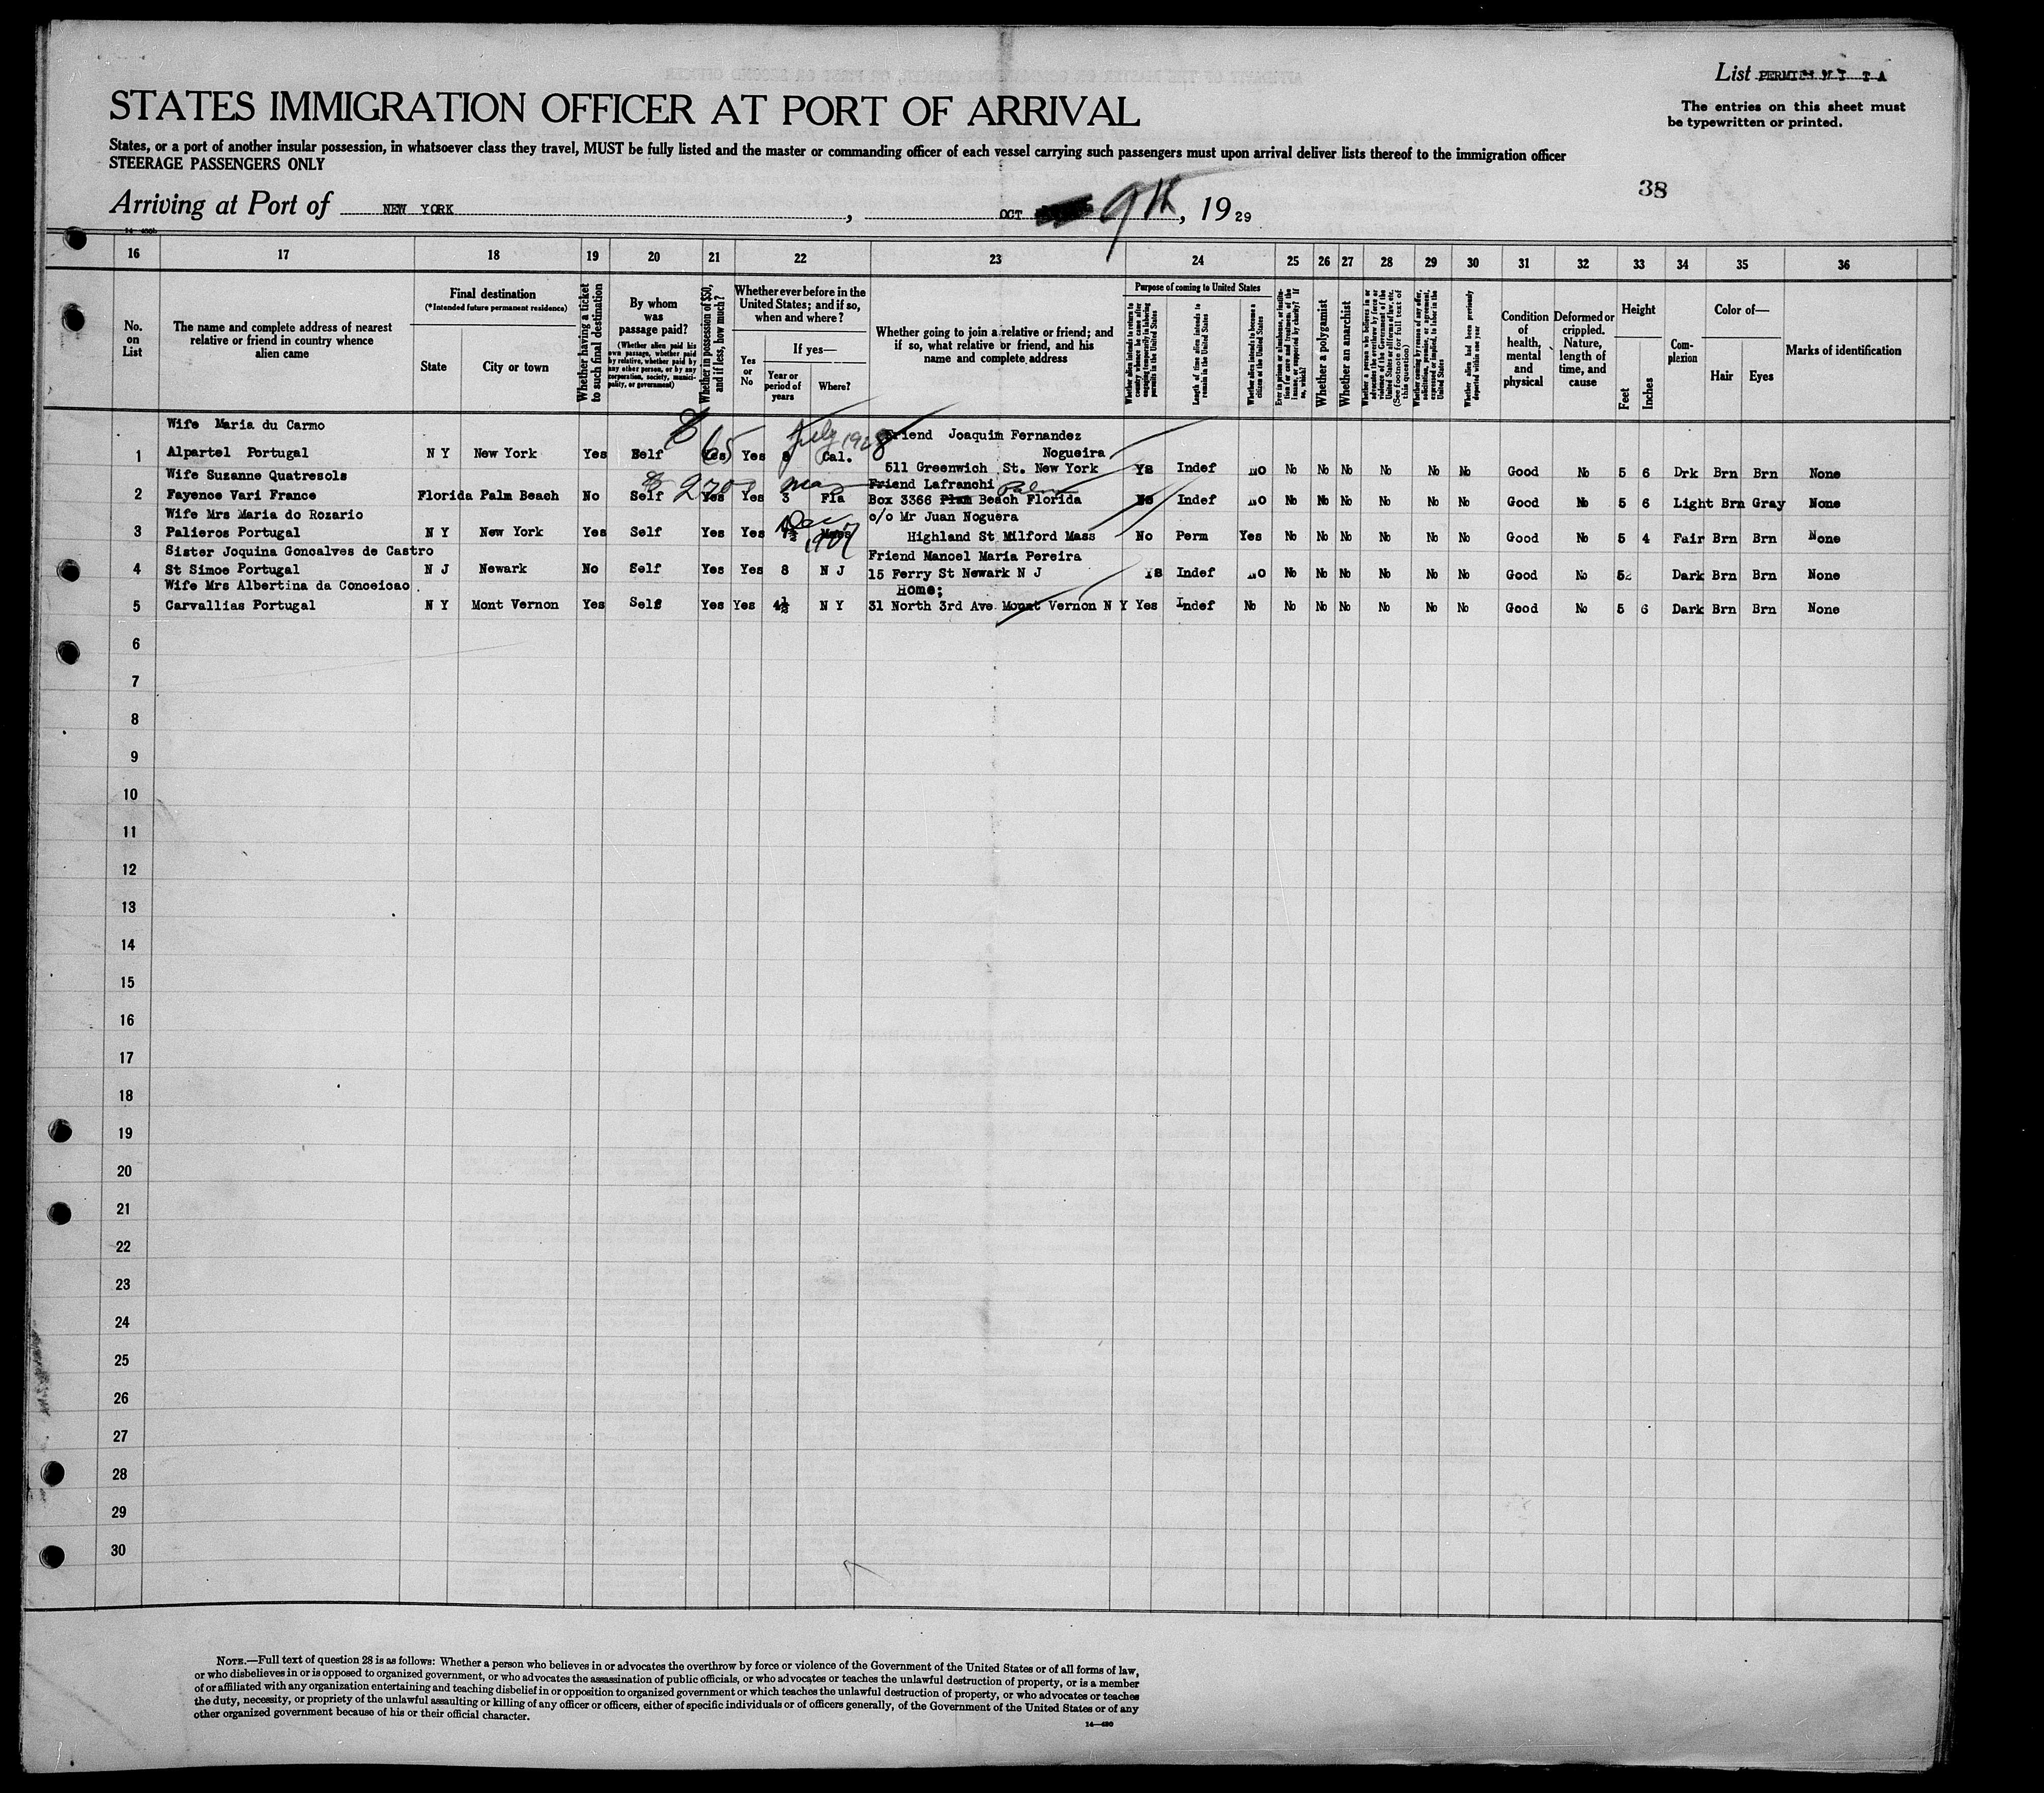 List PERMITS M I T A
The entries on this sheet must
be typewritten or printed.
STATES IMMIGRATION OFFICER AT PORT OF ARRIVAL
States, or a port of another insular possession, in whatsoever class they travel, MUST be fully listed and the master or commanding officer of each vessel carrying such passengers must upon arrival deliver lists thereof to the immigration officer
STEERAGE PASSENGERS ONLY
38
Arriving at Port of NEW YORK, OCT 9th, 1929
16 17 18 19 20 21 22 23 24 25 26 27 28 29 30 31 32 33 34 35 36
No. on List
The name and complete address of nearest relative or friend in country whence alien came
Final destination
(*Intended future permanent residence)
State
City or town
Whether having a ticket to such final destination
By whom was passage paid?
(Whether alien paid his own passage, whether paid by relative, whether paid by any other person, or by any corporation, society, municipality, or government)
Whether in possession of $50, and if less, how much?
Whether ever before in the United States; and if so, when and where?
Yes or No
If yes—
Year or period of years
Where?
Whether going to join a relative or friend; and if so, what relative or friend, and his name and complete address
Purpose of coming to United States
Whether alien intends to return to country whence he came after engaging temporarily in laboring pursuits in the United States
Length of time alien intends to remain in the United States
Whether alien intends to become a citizen of the United States
Ever in prison or almshouse, or institution for care and treatment of the insane, or supported by charity? If so, which?
Whether a polygamist
Whether an anarchist
Whether a person who believes in or advocates the overthrow by force or violence of the Government of the United States or all forms of law, etc. (See footnote for full text of this question)
Whether coming by reason of any offer, solicitation, promise, or agreement, expressed or implied, to labor in the United States
Whether alien had been previously deported within one year
Condition of health, mental and physical
Deformed or crippled. Nature, length of time, and cause
Height
Feet
Inches
Complexion
Color of—
Hair
Eyes
Marks of identification
Wife Maria du Carmo Friend Joaquim Fernandez
Nogueira
1 Alpartel Portugal N Y New York Yes Self Yes 65 Yes 8 July 1928 Cal. 511 Greenwich St. New York Ys Indef No No No No No No No Good No 5 6 Drk Brn Brn None
Wife Suzanne Quatresols Friend Lafranchi
2 Fayence Vari France Florida Palm Beach No Self 270 Yes Yes 3 May Fla Box 3366 Plam Palm Beach Florida No Indef No No No No No No No Good No 5 6 Light Brn Gray None
Wife Mrs Maria do Rozario c/o Mr Juan Noguera
3 Palieros Portugal N Y New York Yes Self Yes Yes Dec 1907 Highland St Milford Mass No Perm Yes No No No No No No Good No 5 4 Fair Brn Brn None
Sister Joquina Goncalves de Castro Friend Manoel Maria Pereira
4 St Simoe Portugal N J Newark No Self Yes Yes 8 N J 15 Ferry St Newark N J Ys Indef No No No No No No No Good No 5 2 Dark Brn Brn None
Wife Mrs Albertina da Conceicao Home;
5 Carvallias Portugal N Y Mont Vernon Yes Self Yes Yes 4½ N Y 31 North 3rd Ave Mount Vernon N Y Yes Indef No No No No No No No Good No 5 6 Dark Brn Brn None
6
7
8
9
10
11
12
13
14
15
16
17
18
19
20
21
22
23
24
25
26
27
28
29
30
NOTE.—Full text of question 28 is as follows: Whether a person who believes in or advocates the overthrow by force or violence of the Government of the United States or of all forms of law,
or who disbelieves in or is opposed to organized government, or who advocates the assassination of public officials, or who advocates or teaches the unlawful destruction of property, or is a member
of or affiliated with any organization entertaining and teaching disbelief in or opposition to organized government or which teaches the unlawful destruction of property, or who advocates or teaches
the duty, necessity, or propriety of the unlawful assaulting or killing of any officer or officers, either of specific individuals or of officers generally, of the Government of the United States or of any
other organized government because of his or their official character.
14—430